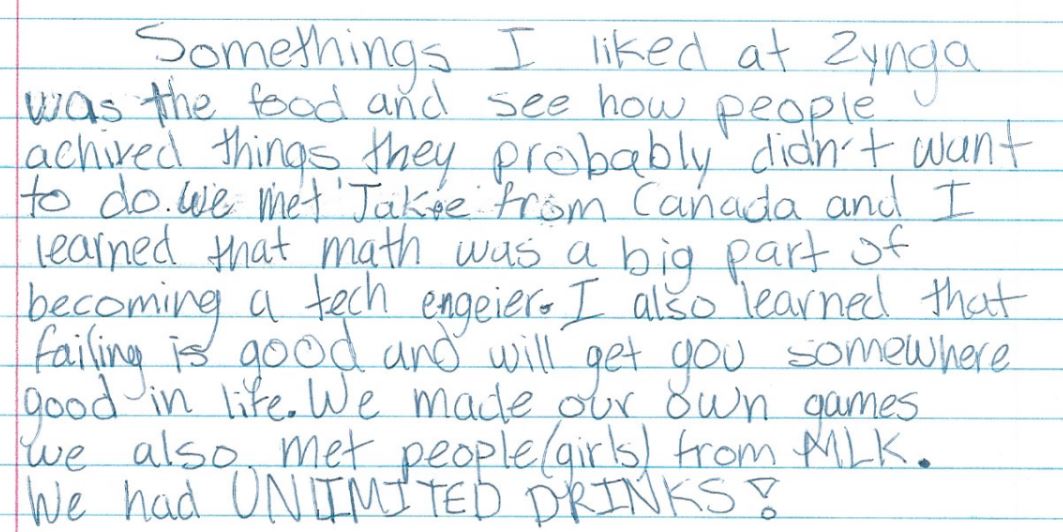 Somethings I liked at Zynga
was the food and see how people
achived things they probably didn't want
to do. We met Jakie from Canada and I
learned that math was a big part of
becoming a tech engeier. I also learned that
failing is good and will get you somewhere
good in life. We made our own games
we also met people (girls) from MLK.
We had UNLIMITED DRINKS!